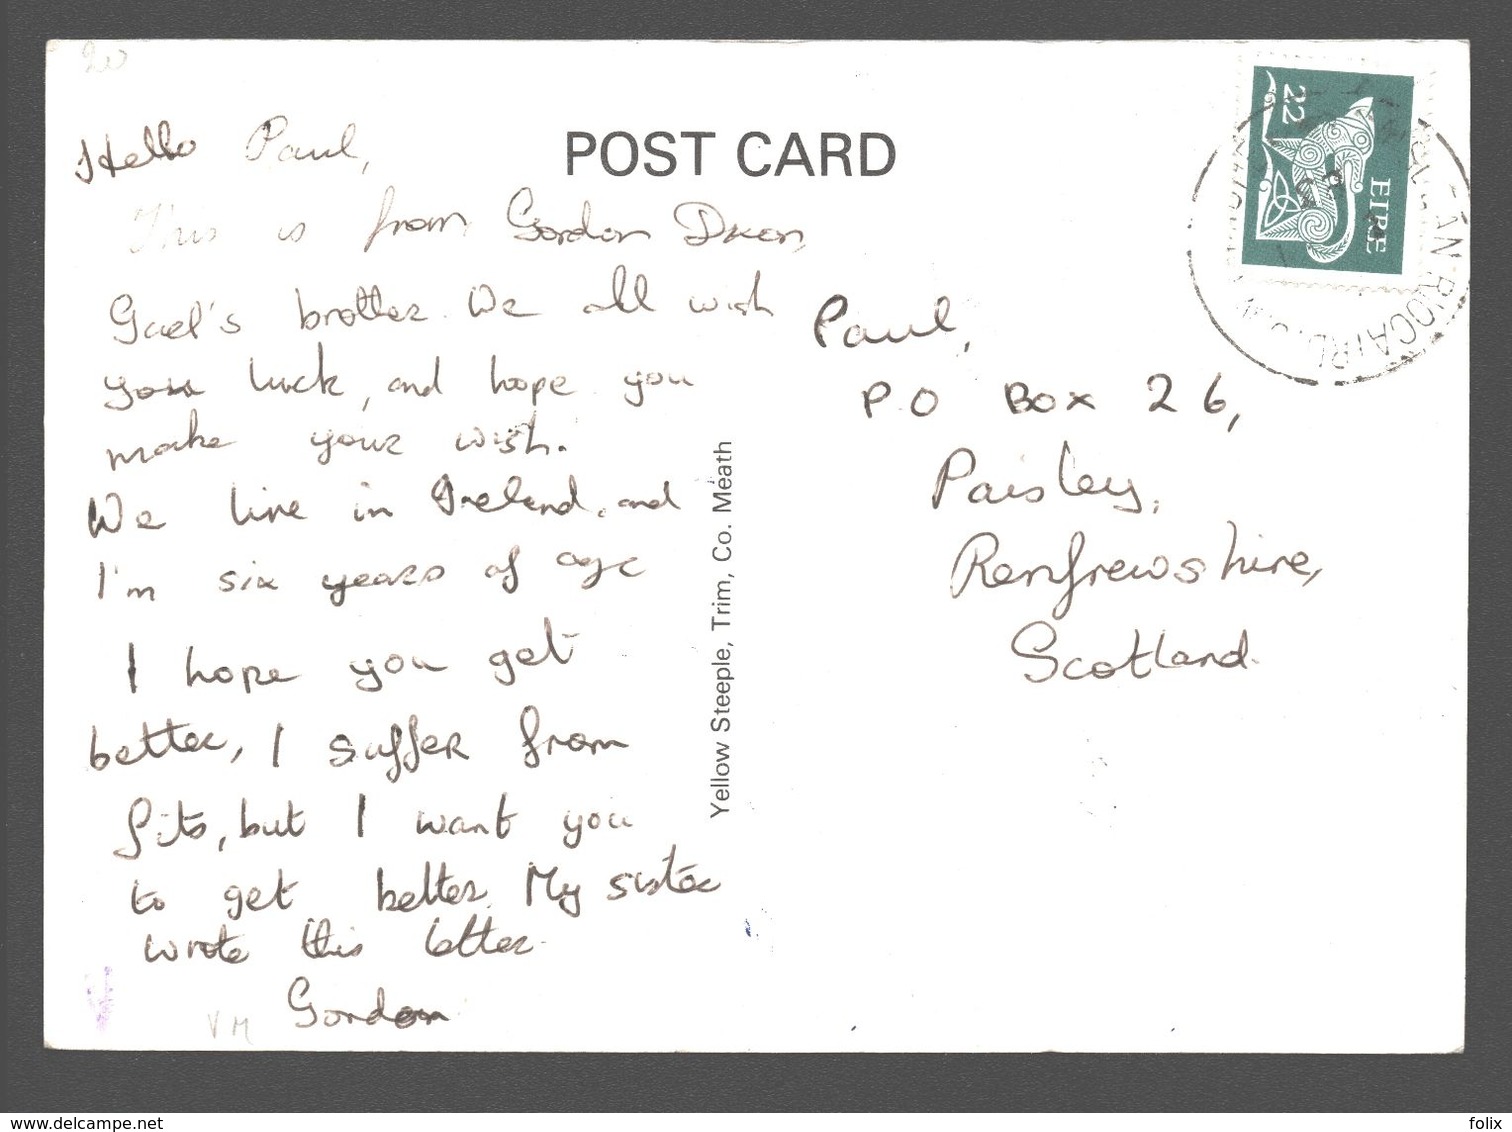 20
Hello Paul,
This is from Gordon Dixon,
Gael's brother. We all wish
you luck, and hope you
make your wish.
We live in Ireland, and
I'm six years of age
I hope you get
better, I suffer from
fits, but I want you
to get better. My sister
wrote this letter.
Gordon
VM
POST CARD
Yellow Steeple, Trim, Co. Meath
22
EIRE
Paul,
P.O Box 26,
Paisley,
Renfrewshire,
Scotland.
www.delcampe.net
folix